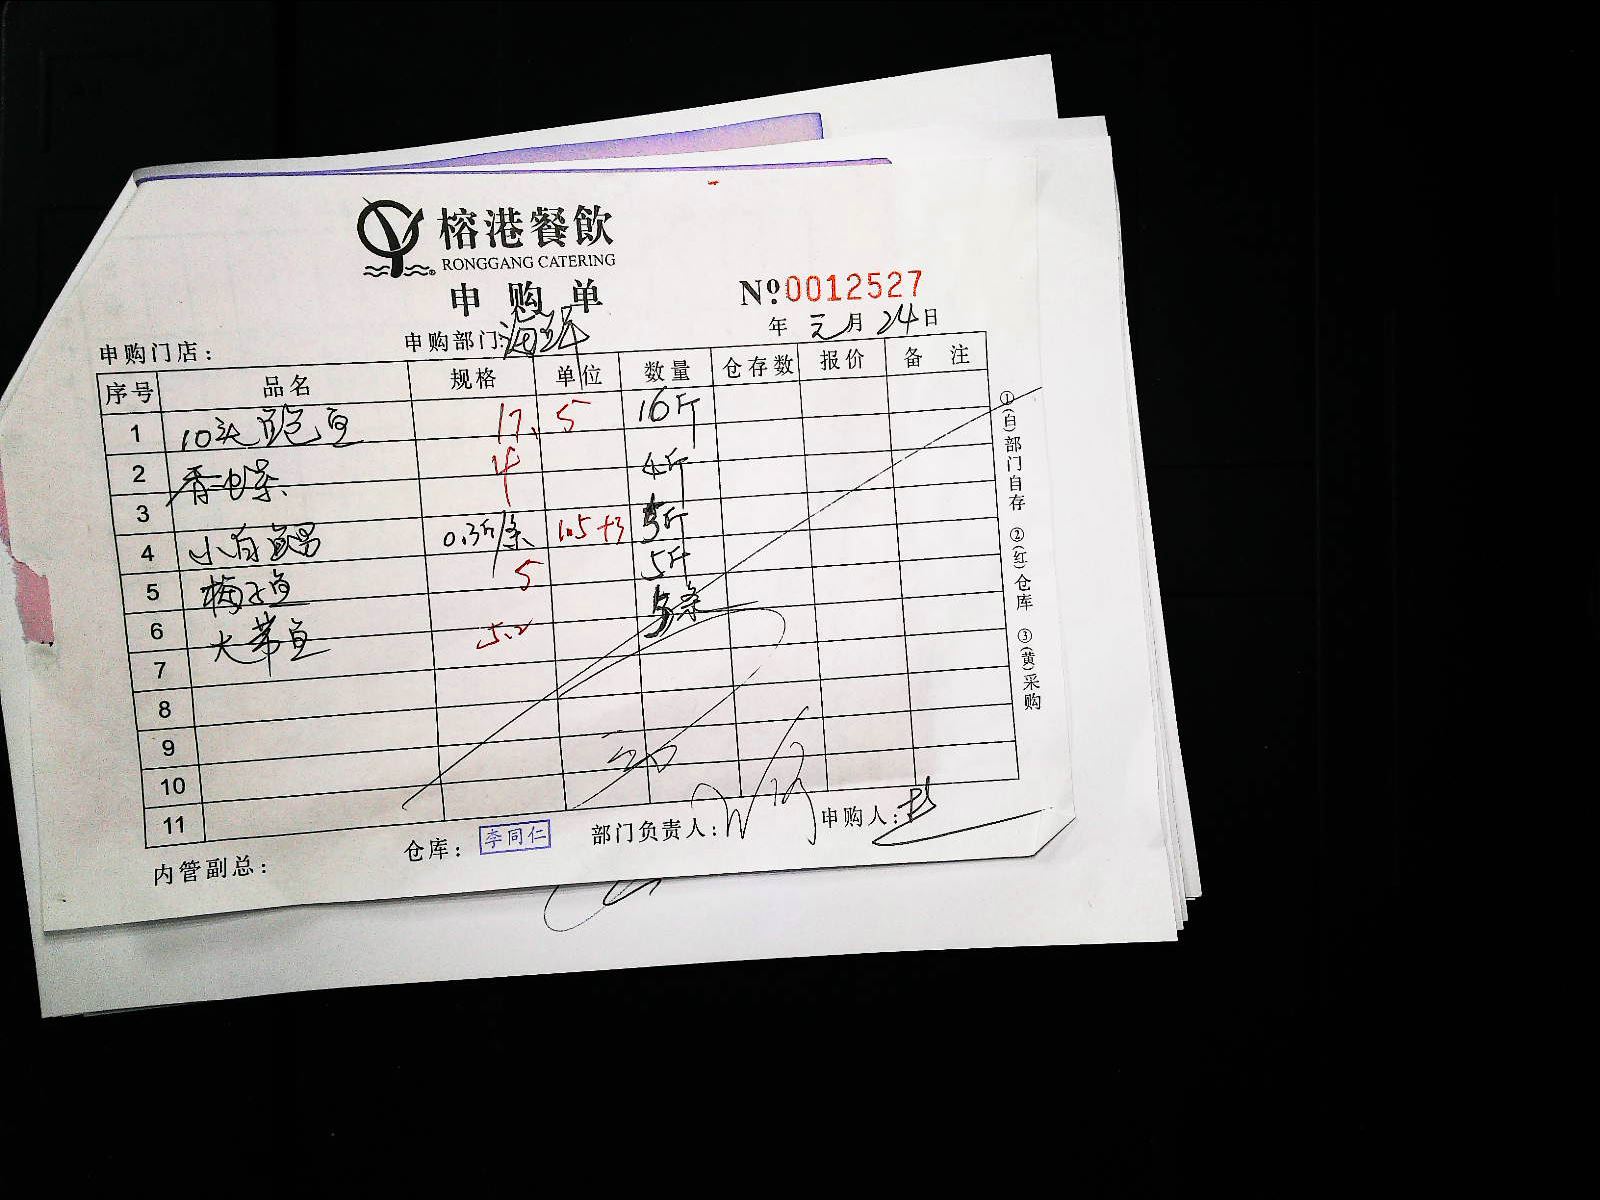 榕港餐飲
RONGGANG CATERING
申购单
№0012527
年 元月 24日
申购门店：
申购部门：海鲜
序号 品名 规格 单位 数量 仓存数 报价 备注
1 10头鲍鱼 17.5 16斤
2 香螺 4斤
3
4 小白鲳 0.3斤/条 10.5+3 5斤
5 梅子鱼 5 5斤
6 大带鱼 5.2 5条
7
8
9
10
11
①(白)部门自存 ②(红)仓库 ③(黄)采购
内管副总：
仓库：李同仁
部门负责人：
申购人：